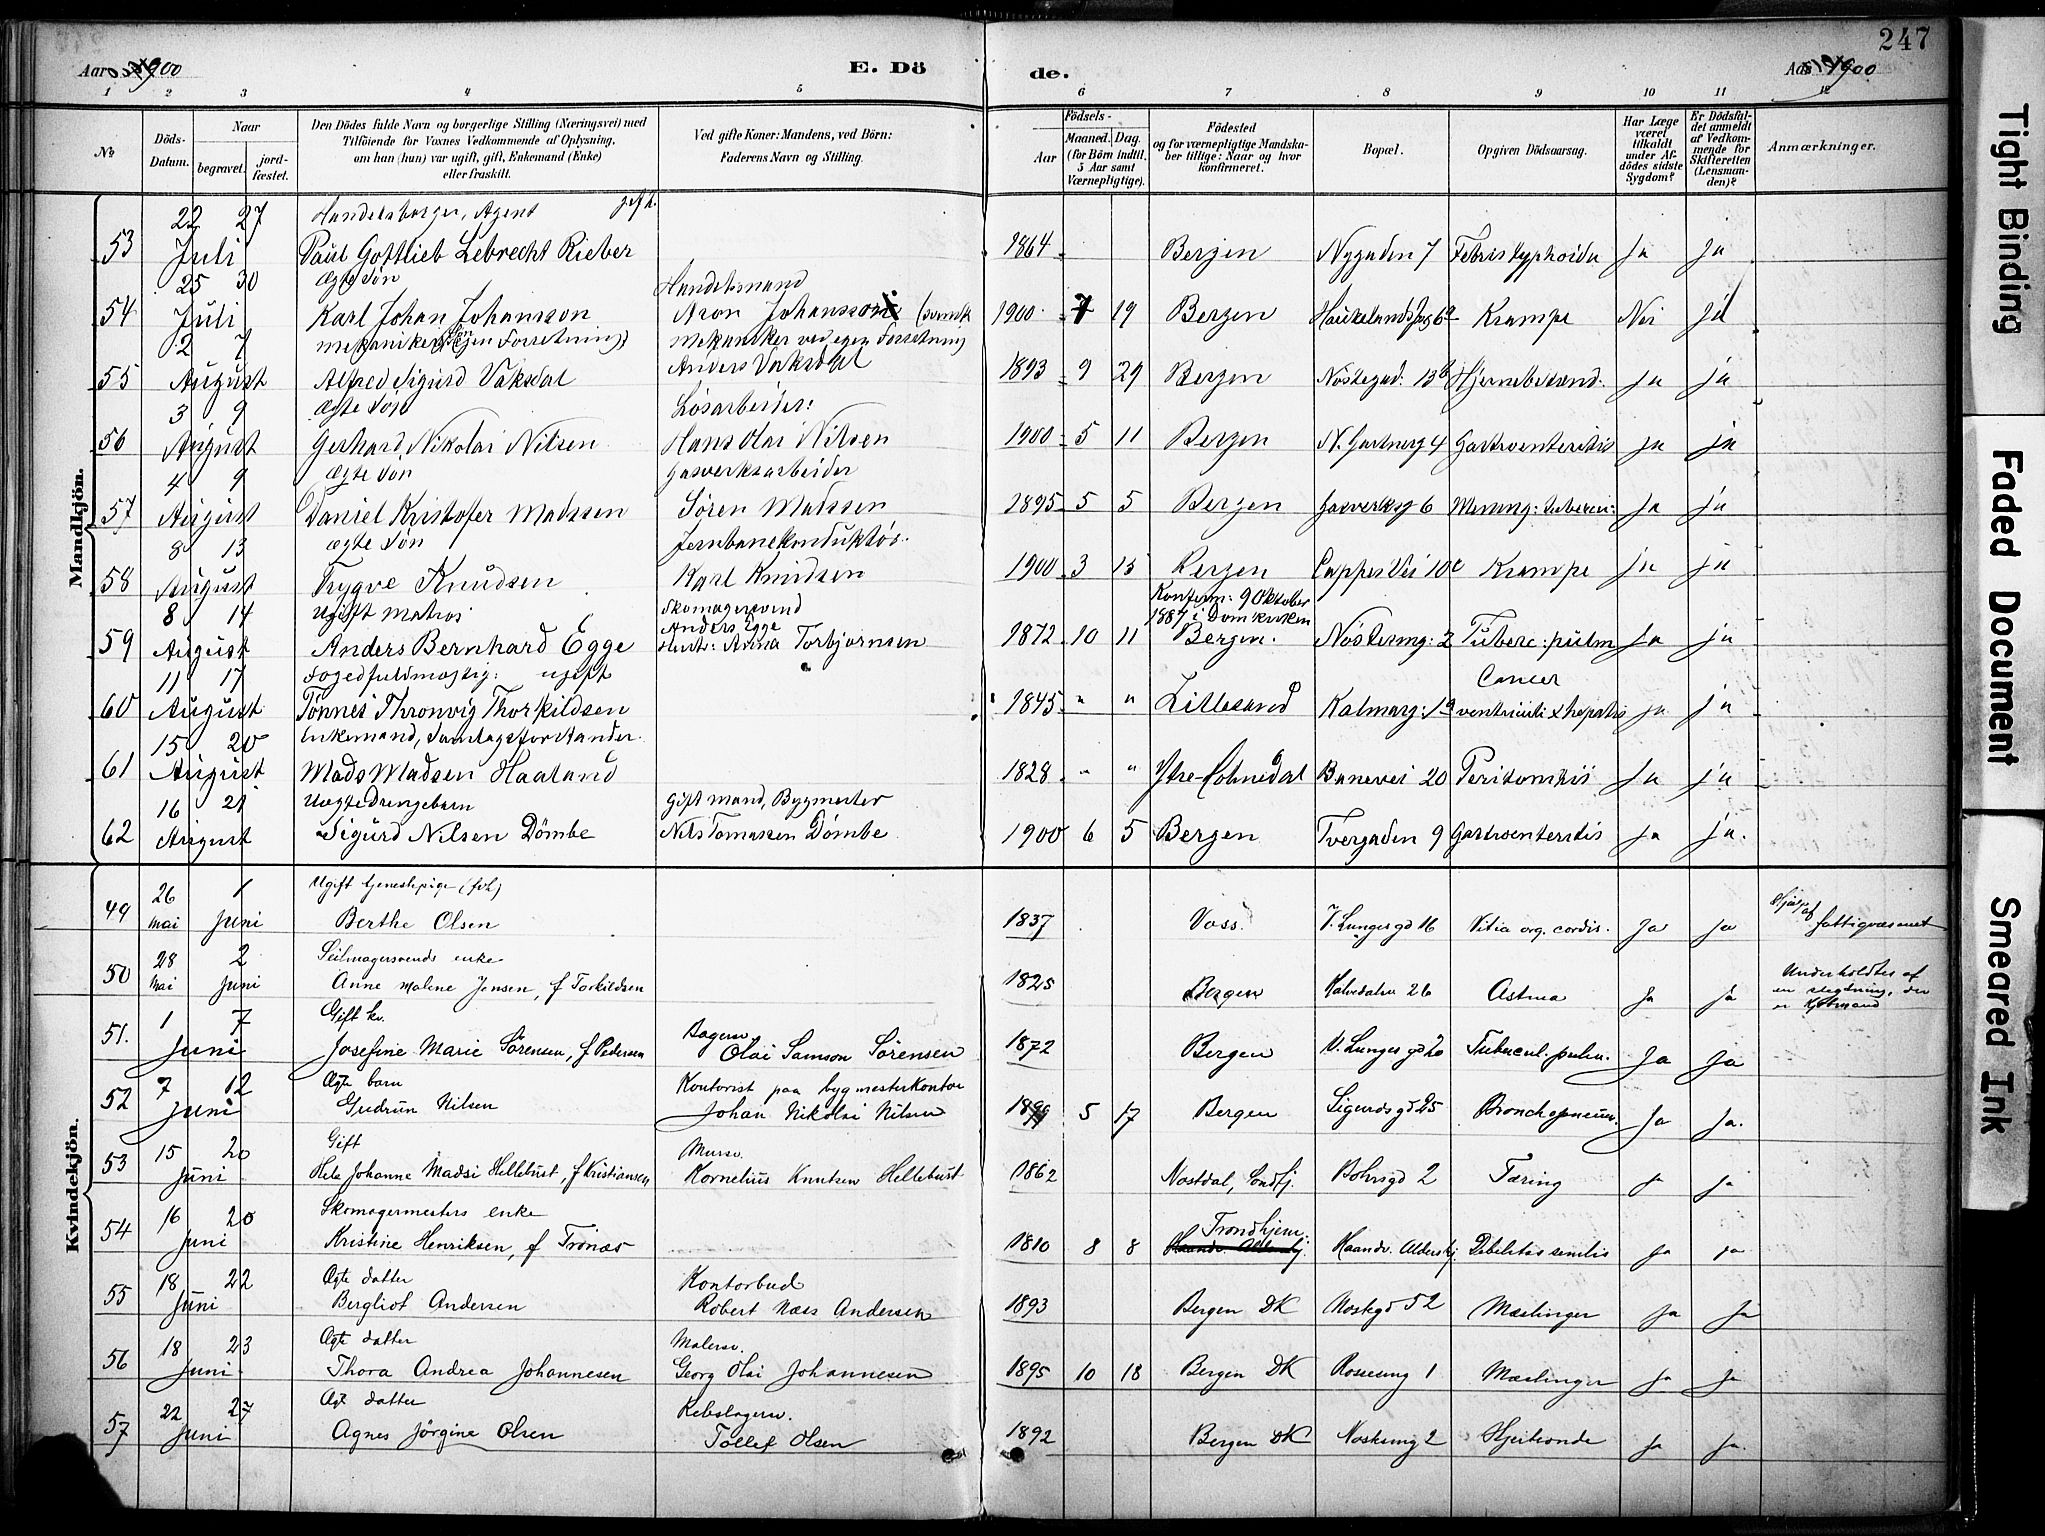 247
Aar 1900
E. Dö
de.
Aar 1900
1 2 3 4 5 6 7 8 9 10 11 12
No
Döds-Datum.
Naar
begravet.
jord-fæstet.
Den Dödes fulde Navn og borgerlige Stilling (Næringsvei) med
Tilföiende for Voxnes Vedkommende af Oplysning,
om han (hun) var ugift, gift, Enkemand (Enke)
eller fraskilt.
Ved gifte Koner: Mandens, ved Börn:
Faderens Navn og Stilling.
Födsels-
Aar
Maaned.
Dag.
(for Börn indtil
5 Aar samt
Værnepligtige).
Födested
og for værnepligtige Mandska-
ber tillige: Naar og hvor
konfirmeret.
Bopæl.
Opgiven Dödsaarsag.
Har Læge
været
tilkaldt
under Af-
dödes sidste
Sygdom?
Er Dödsfal-
det anmeldt
af Vedkom-
mende for
Skifteretten
(Lensman-
den)?
Anmærkninger.
Mandkjön.
22 27 Handelsborger, Agent gift.
53 Juli Paul Gottlieb Lebrecht Rieber 1864 Bergen Nygaden 7 Febris typhoidea Ja Ja
25 30 Ægte Søn Handelsmand
54 Juli Karl Johan Johansson Aron Johansson (svensk 1900 7 19 Bergen Krampe Nei Ja
2 7 mekaniker Søn (egen Forretning) mekaniker ved egen Forretning
55 August Alfred Sigurd Vaksdal Anders Vaksdal 1893 9 29 Bergen Nøstegad: 13b Hjernebetænd: ja ja
3 9 Ægte Søn Løsarbeider:
56 August Gerhard Nikolai Nilsen Hans Olai Nilsen 1900 5 11 Bergen N. Gartnerg 4 Gastroenteritis ja ja
4 9 Ægte Søn Gasverksarbeider
57 August Daniel Kristofer Madssen Søren Madssen 1895 5 5 Bergen Gasverksg 6 Mening: tuberu: Ja ja
8 13 ægte Søn Jernbanekonduktør.
58 August Trygve Knudsen Karl Knudsen 1900 3 15 Bergen Cappes Vei 10c Krampe ja ja
8 14 Ugift Matros Skomagersvend Konferm: 9 Oktober
Anders Egge 1887 i Domkirken
59 August Anders Bernhard Egge Hust: Anna Torbjørnsen 1872 10 11 Bergen. Nøstesmg: 2 Tuberc: pulm Ja ja
11 17 Fogedfuldmægtig: ugift Cancer
60 August Tønnes Thronvig Thorkildsen 1845 " " Lillesand Kalmarg: 1a ventriculi & hepatis ja ja
15 20 Enkemand,
61 August Mads Madsen Haaland 1828 " " Banevei 20 Peritonitis Ja ja
16 21 Uægte Drengebarn Gift mand, Bygmester
62 August Sigurd Nilsen Dömbe Nils Tomassen Dömbe 1900 6 5 Bergen Tvergaden 9 Gastroenteritis ja ja.
Kvindekjön.
26 1 Ugift tjenestepige
49 mai juni Berthe Olsen 1837 Voss. V. Lungegd 16 Vitia org. cordis. Ja ja Hjulp. af fattigvæsenet
28 2 Seilmagersvends enke Underholdtes af
50 Mai juni Anne Malene Jensen, f Torkildsen 1825 Bergen Kalvedalsv 26 Astma Ja Ja en slegtning, der
er Kjøbmand
1 7 Gift kv. Bagersv.
51. Juni Josefine Marie Sørensen, f Pedersen Olai Samson Sørensen 1872 Bergen V. Lunges gd 20 Tubercul. pulm. Ja Ja
7 12 Ægte barn Kontorist paa bygmesterkontor
52 Juni Gudrun Nilsen Johan Nikolai Nilsen 1899 5 17 Bergen Sigurds gd 25 Bronchopneum. Ja Ja.
15 20 Gift Murer.
53 Juni Johanne Madsi Hellebust, f Kristiansen Kornelius Knutsen Hellebust 1862 Nostdal, Sondfj. Bøhrsgd 2 Tæring Ja Ja
16 20 Skomagermesters enke Trondhjem.
54 juni Kristine Henriksen, f Trønæs 1810 8 8 Haandv. Aldershj. Haandv. Aldershj. Debilitas senilis Ja ja
18 22 Ægte datter Kontorbud
55 Juni Bergliot Andersen Robert Næss Andersen 1893 Bergen DK Nostegd 52 Mæslinger Ja Ja
18 23 Ægte datter Malersv.
56 Juni Thora Andrea Johannesen Georg Olai Johannesen 1895 10 18 Bergen DK Rosesmg 1 Mæslinger Ja Ja
22 27 Ægt datter Rebslagersv.
57 Juni Agnes Jørgine Olsen Tollef Olsen 1892 Bergen DK Nostesmg 2 Ja Ja.
Tight Binding
Faded Document
Smeared Ink